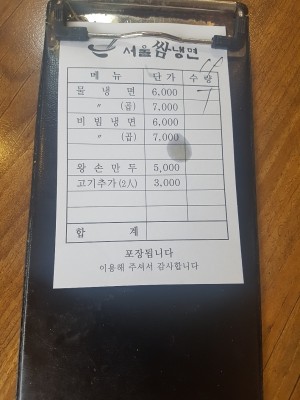 서울쌈냉면
메뉴 단가 수량
물냉면 6,000
〃 (곱) 7,000
비빔냉면 6,000
〃 (곱) 7,000
왕손만두 5,000
고기추가(2人) 3,000
합계
포장됩니다
이용해 주셔서 감사합니다